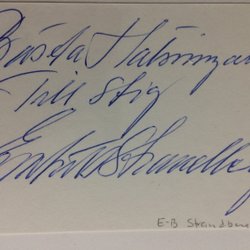 Bästa Hälsningar
Till Stig
Strandberg
E-B Strandber